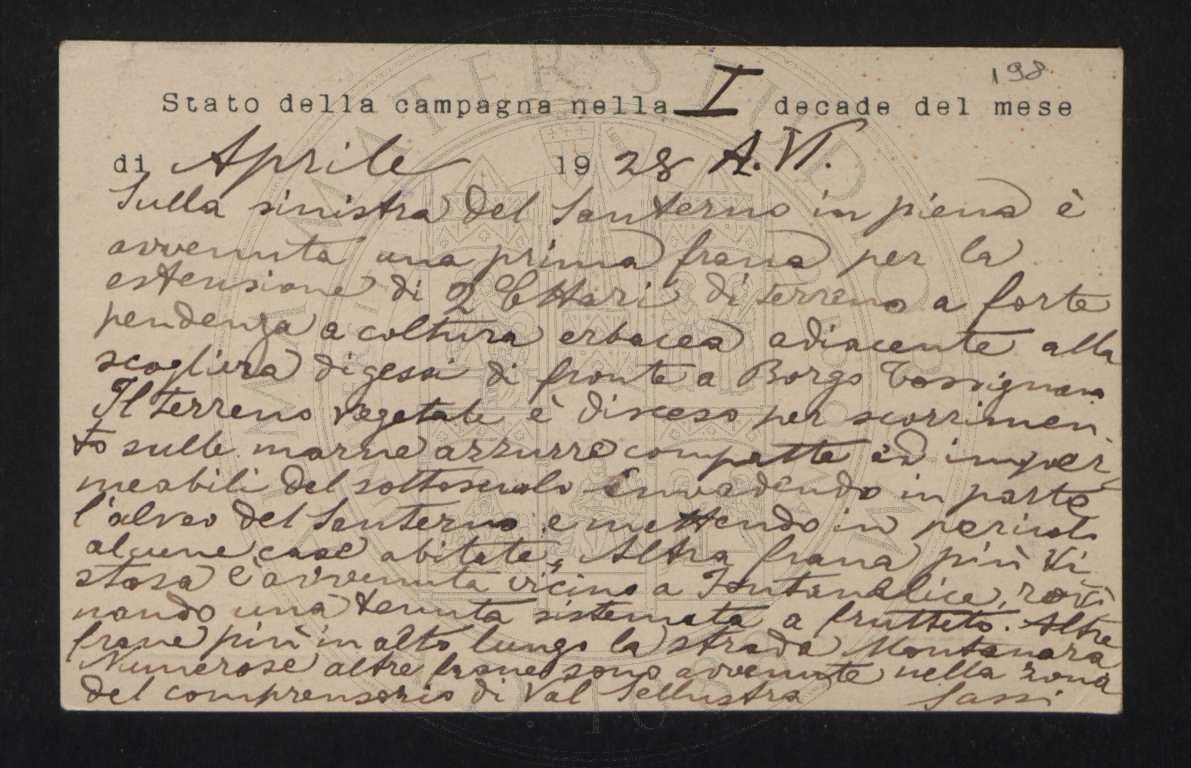 198
Stato della campagna nella I decade del mese
di Aprile 1928 A.VI.
Sulla sinistra del Santerno in piena è
avvenuta una prima frana per la
estensione di 2 Ettari di terreno a forte
pendenza a coltura erbacea adiacente alla
scogliera di gessi di fronte a Borgo Tossignano
Il terreno vegetale è disceso per scorrimen-
to sulle marne azzurre compatte ed imper
meabili del sottosuolo invadendo in parte
l'alveo del Santerno e mettendo in pericolo
alcune case abitate, Altra frana più vi
stosa è avvenuta vicino a Fontanelice, rovi
nando una tenuta sistemata a frutteto. Altre
frane più in alto lungo la strada Montanara
Numerose altre frane sono avvenute nella zona
del comprensorio di Val Sellustra Sassi